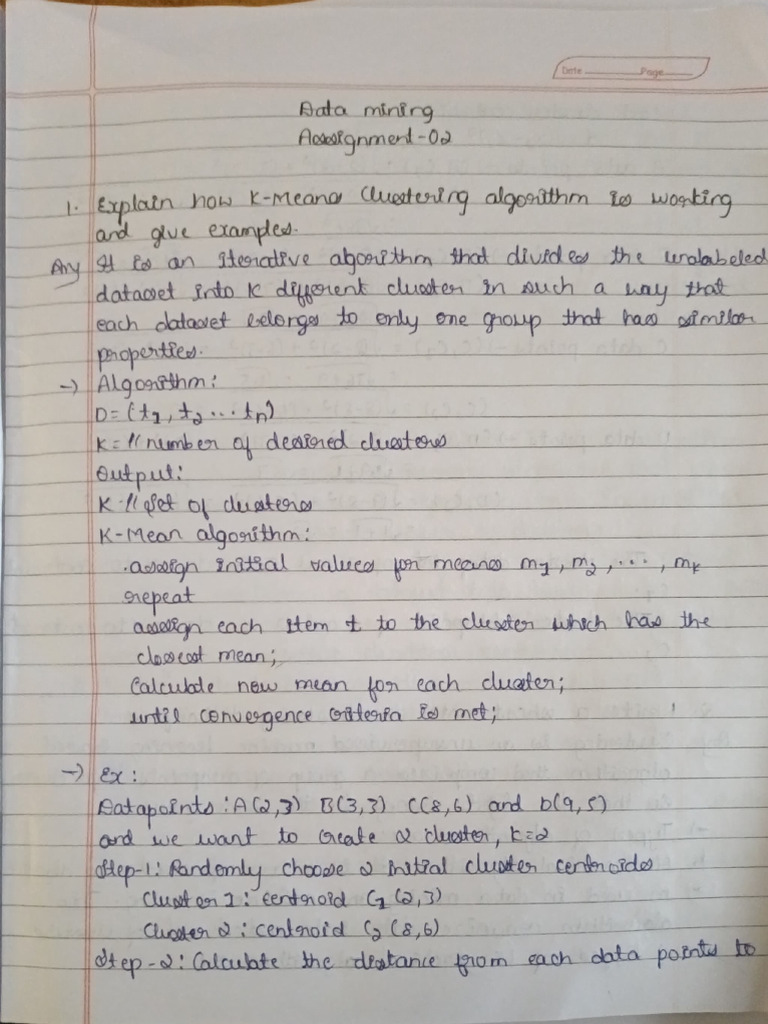 Date Page
Data mining
Assignment-02
1. Explain how K-Means Clustering algorithm is working
and give examples.
Any It is an iterative algorithm that divides the unalabeled
dataset into K different cluster in such a way that
each dataset belongs to only one group that has similar
properties.
→ Algorithm:
D = (t1, t2 ... tn)
K = // number of desired clusters
Output:
K // Set of clusters
K-Mean algorithm:
.assign initial values for means m1, m2, ..., mk
repeat
assign each item t to the cluster which has the
closest mean;
Calculate new mean for each cluster;
until convergence criteria is met;
→ Ex:
Datapoints: A(2,3) B(3,3) C(8,6) and D(9,5)
and we want to create 2 cluster, K=2
Step-1: Randomly choose 2 initial cluster centroids
Cluster 1: centroid C1 (2,3)
Cluster 2: centroid C2 (8,6)
Step-2: Calculate the distance from each data points to